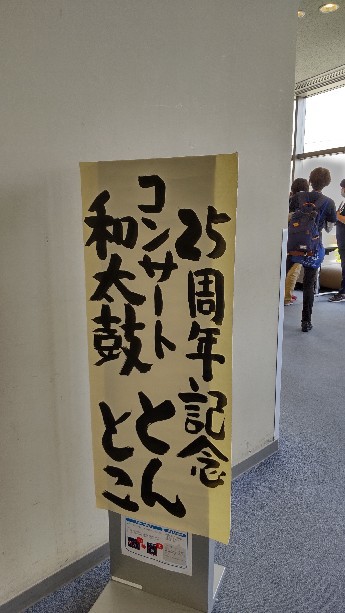 25周年記念
コンサート
和太鼓
とん
とこ